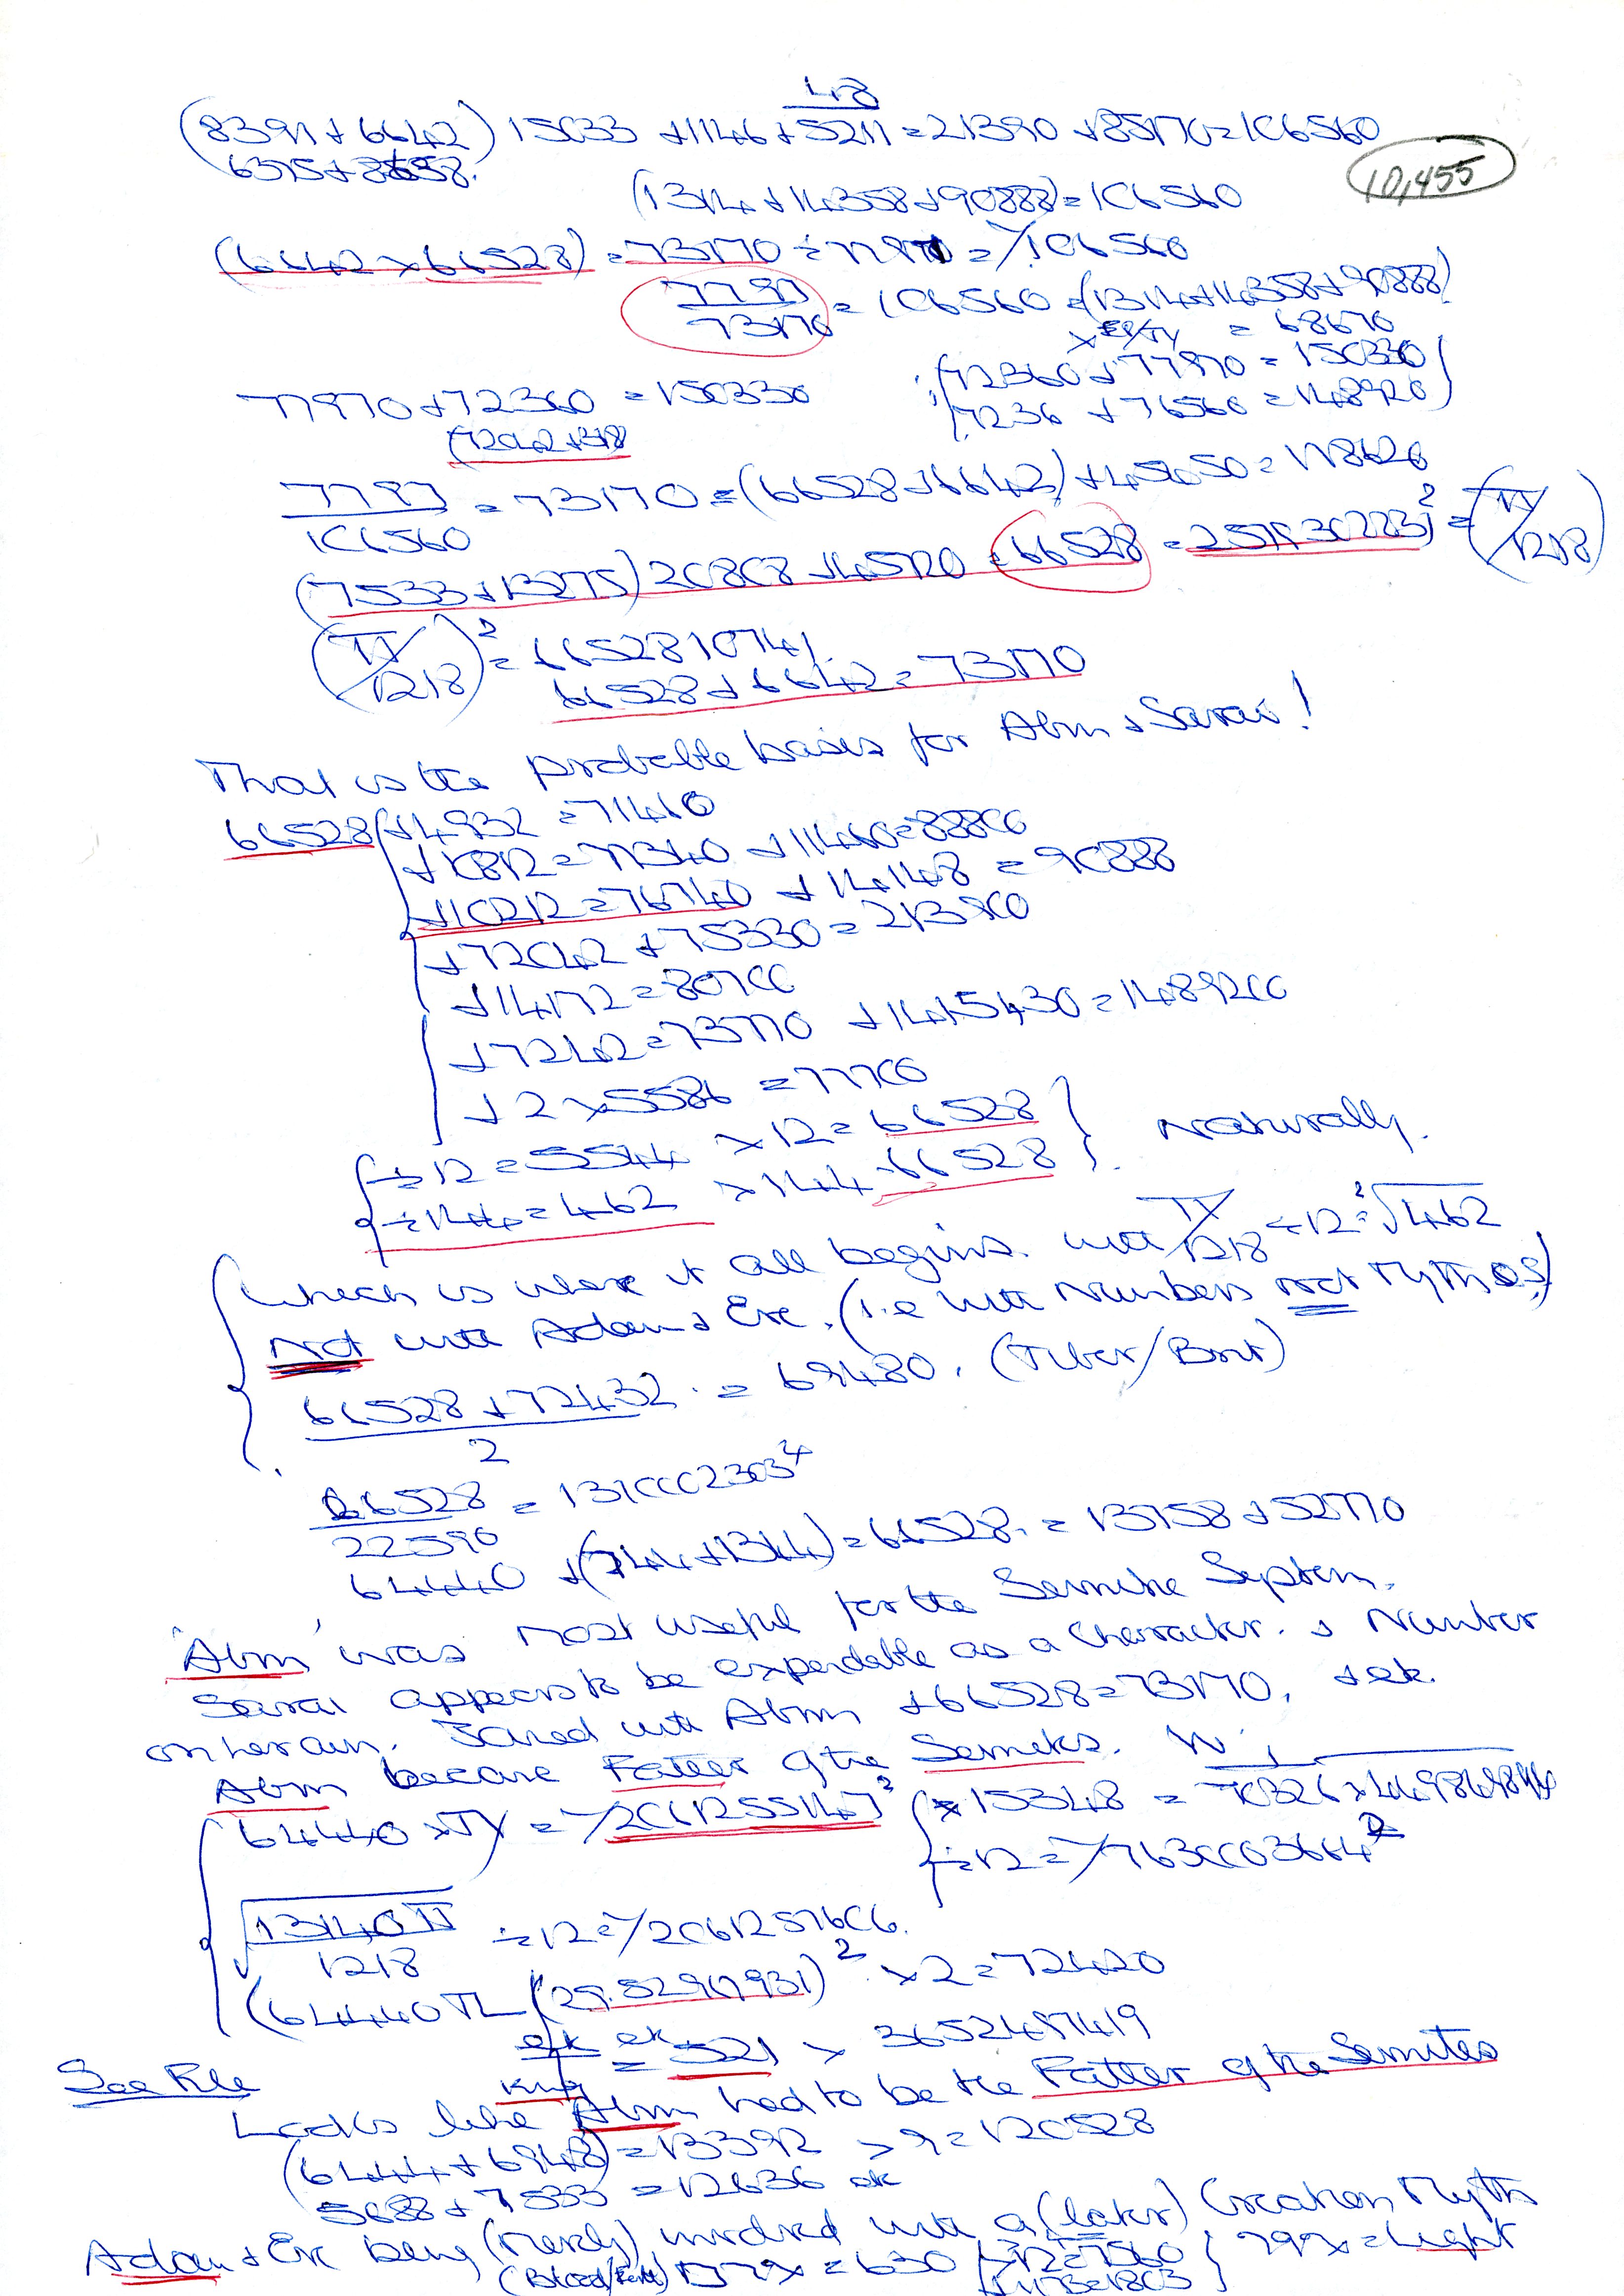 48
(8391 + 6642) 15033 + 1146 + 5211 = 21390 + 85170 = 106560
6375 + 8658.
10,455
(1314 + 14358 + 90888) = 106560
(6642 × 66528) = 73170 ÷ 7797 = 106560
7797 / 73170 = 106560 = (1314 + 14358 + 90888)
= 68670
77970 + 72360 = 150330
(72360 + 77970 = 150330
(72042 + 318
7236 + 76560 = 148920)
7797 / 106560 = 73170 = (66528 + 6642) + 45450 = 118620
(7533 + 13275) 20808 + 45720 = 66528 = 257930223)² = (π/1218)
(π/1218)² = 6652810741.
66528 + 6642 = 73170
That is the probable basis for Abm & Sarai!
66528 + 4932 = 71460
+ 10812 = 77340 + 11460 = 88800
+ 10212 = 76740 + 14148 = 90888
+ 72042 + 75330 = 213900
+ 14172 = 80700
+ 7242 = 73770 + 1415430 = 1489200
+ 2 × 5586 = 77700
÷ 12 = 5544 × 12 = 66528
Naturally.
÷ 144 = 462 × 144 = 66528
Which is where it all begins. with π/1218 ÷ 12 = ²√462
Not with Adam & Eve. (i.e with Numbers not Myths)
66528 + 72432 / 2 = 69480. (Tiber/Bnt)
66528 / 22590 = 1310002303⁴
64440 + (744 + 1344) = 66528. = 13758 + 52770
'Abm' was most useful for the Semite System.
Sarai appears to be expendable as a character. & Number
on her own. Joined with Abm + 66528 = 73170, + ek.
Abm became Father of the Semites.
64440 × π = 2061255147² × 15348 =
÷ 12 = 7630003664²
√13140π / 1218 ÷ 12 = 2061257606.
(64440 π (29.52907931)² × 2 = 72420
ek ek = 521 × 3652487419
See File
King
Looks like Abm had to be the Father of the Semites
(6444 + 6948) = 13392 × 9 = 120528
5688 + 7533 = 12636 ek
Adam & Eve being (merely) involved with a (later) Creation Myth
= 630 × 12 = 7560 797x = Light